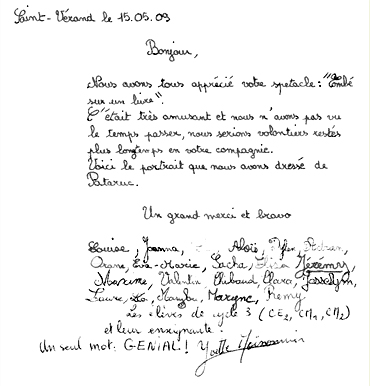 Saint-Vérand le 15.05.09
Bonjour,
Nous avons tous apprécié votre spetacle : "Tombé
sur un livre".
C'était très amusant et nous n'avons pas vu
le temps passer, nous serions volontiers restés
plus longtemps en votre compagnie.
Voici le portrait que nous avons dressé de
Pataruc.
Un grand merci et bravo
Louise, Joanna, Aloïs, Dylan, Adrien,
Orane, Eva-Marie, Sacha, Jérémy,
Maxime, Valentin, Thibaud, Clara, Josselyn,
Laure, Maryne, Remy
Les élèves de cycle 3 (CE2, CM1, CM2)
et leur enseignante.
Un seul mot: GENIAL! Yvette